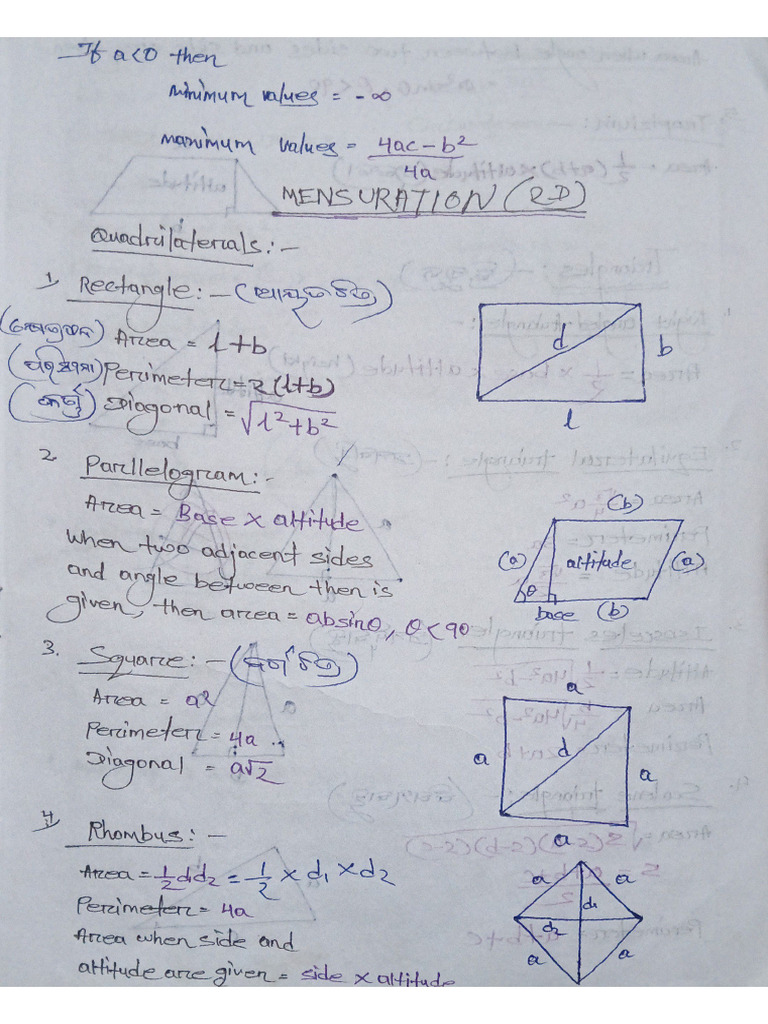 If a<0 then
minimum values = -∞
maximum values = 4ac-b²/4a
MENSURATION (2D)
Quadrilaterals:-
1) Rectangle:- (ଆୟତ ଚିତ୍ର)
(କ୍ଷେତ୍ରଫଳ) Area = l+b
(ପରିସୀମା) Perimeter = 2(l+b)
(କର୍ଣ୍ଣ) Diagonal = √l²+b²
d
b
l
2. Parllelogram:-
Area = Base x altitude
when two adjacent sides
and angle between then is
given, then area = absinθ, θ<90
(b)
(a) altitude (a)
θ
base (b)
3. Square:- (ବର୍ଗ ଚିତ୍ର)
Area = a2
Perimeter = 4a
Diagonal = a√2
a
a d a
a
4) Rhombus:-
Area = 1/2 d1d2 = 1/2 x d1 x d2
Perimeter = 4a
Area when side and
altitude are given = side x altitude
a a
d1
d2
a a